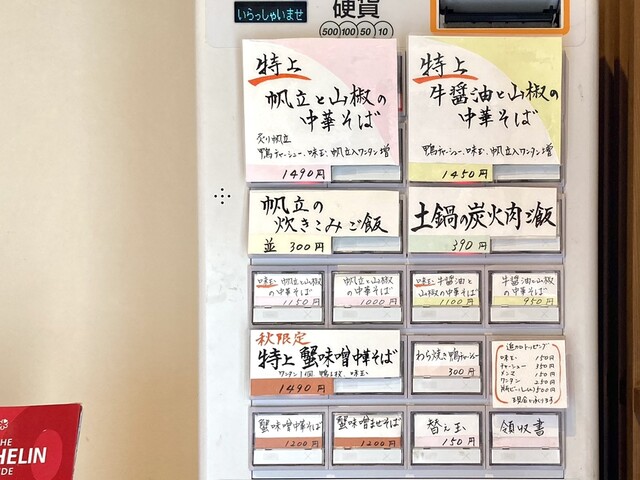 いらっしゃいませ
硬貨
500 100 50 10
特上
帆立と山椒の
中華そば
炙り帆立
鴨チャーシュー、味玉、帆立入ワンタン増
1490円
特上
牛醤油と山椒の
中華そば
鴨チャーシュー、味玉、帆立入ワンタン増
1450円
帆立の
炊きこみご飯
並 300円
土鍋の炭火肉ご飯
390円
味玉 帆立と山椒
の中華そば
1150円
帆立と山椒
の中華そば
1000円
味玉 牛醤油と
山椒の中華そば
1100円
牛醤油と山椒
の中華そば
950円
秋限定
特上 蟹味噌中華そば
ワンタン1個 鴨2枚、味玉
1490円
わら焼き鴨チャーシュー
300円
追加トッピング
味玉 150円
チャーシュー 350円
メンマ 150円
ワンタン 250円
500円
現金で承ります
蟹味噌中華そば
1200円
蟹味噌まぜそば
1200円
替え玉
150円
領収書
HE
HELIN
DE